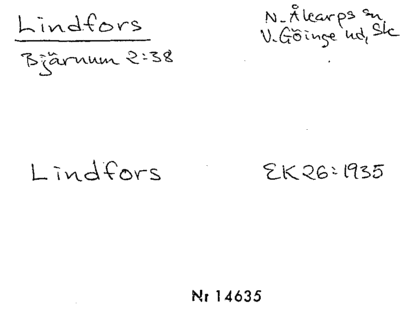 Lindfors
Bjärnum 2:38
N. Åkarps sn
V. Göinge hd, Sk
Lindfors
EK26:1935
Nr 14635